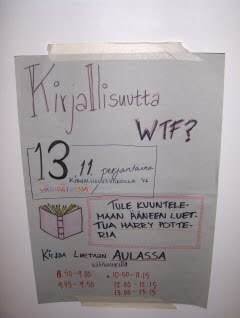 Kirjallisuutta
WTF?
13.11. perjantaina
TULE KUUNTELE-
MAAN ÄÄNEEN LUET-
TUA HARRY POTTE-
RIA
KIRJAA LUETAAN AULASSA
8.50-9.00
10.50-11.15
9.45-9.50
12.00-12.15
13.00-13.15